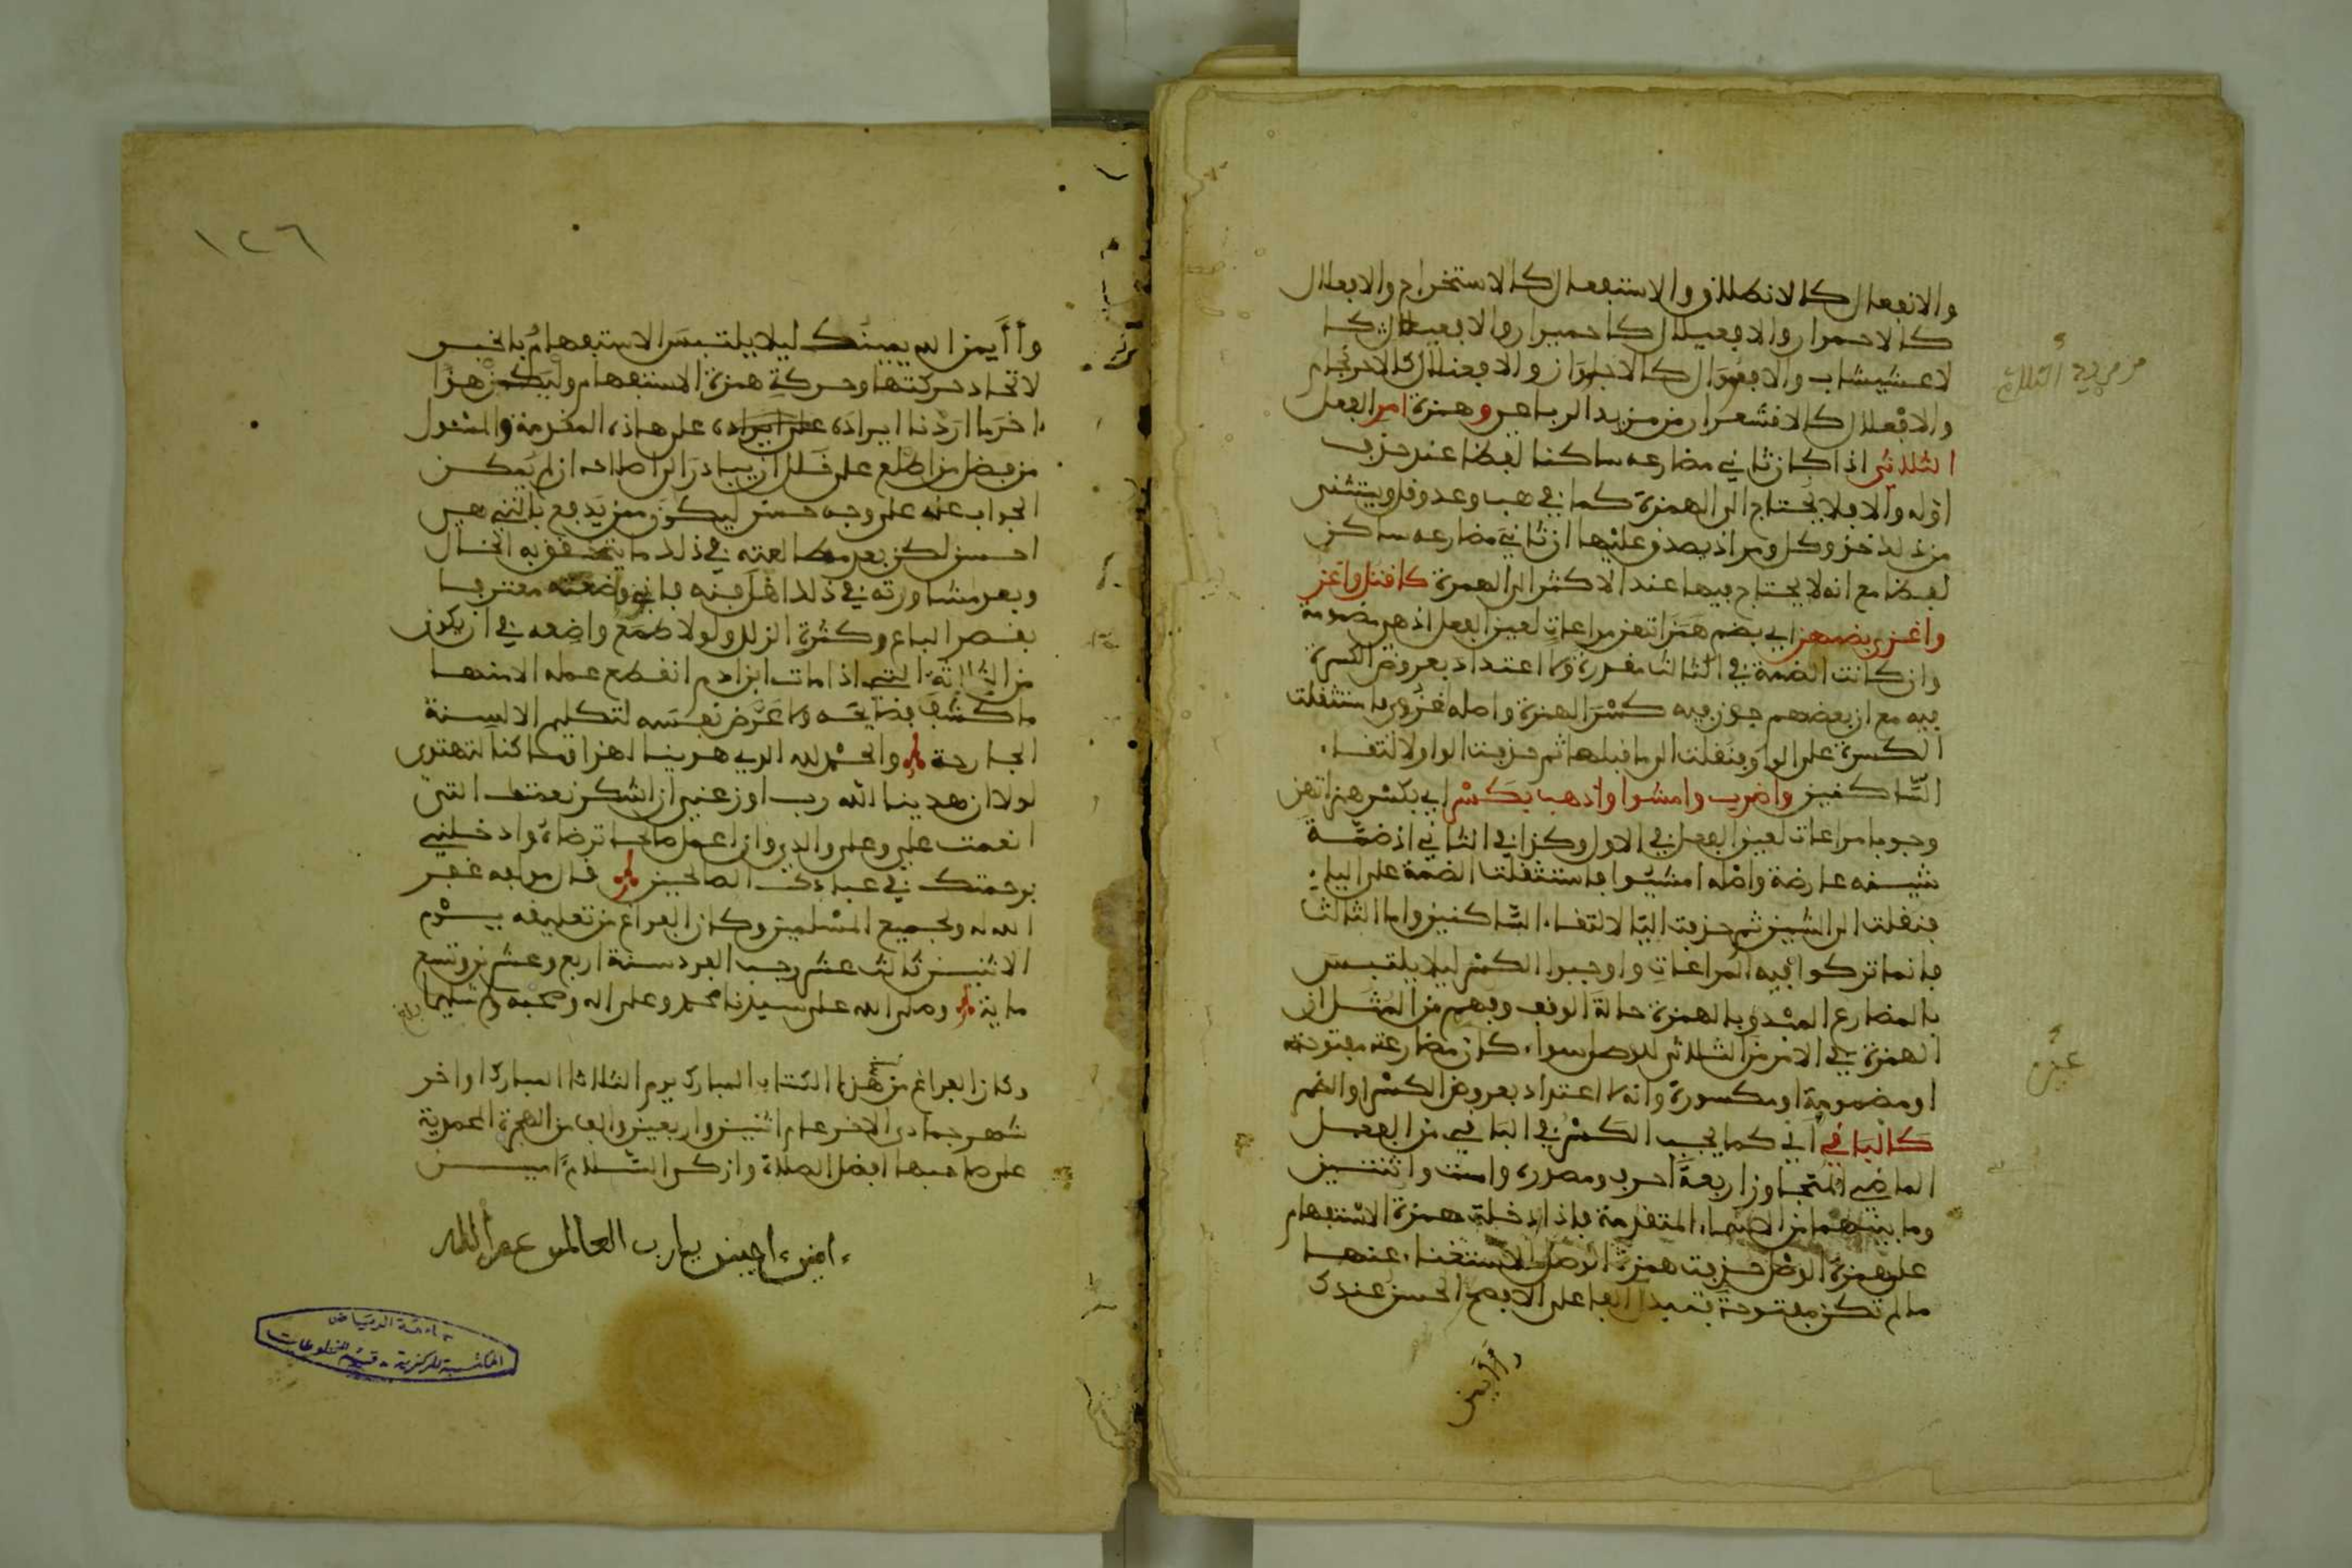 والانفعال كالانطلاق والاستفعال كالاستخراج والافعلال
كالاحمرار والافعيلال كاحميرار والافعيعال كا
لاعشيشاب والافعوال كالاجلواز والافعنلال كالاحرنجام
من مزيد الثلاثي
والافعلال كالاقشعرار من مزيد الرباعي وهمزة امر الفعل
الثلاثي اذا كان ثاني مضارعه ساكنا لفظا عند حذف
اوله والا فلا يحتاج الى الهمزة كما في هب وعد وقل ويستثنى
من ذلك خذ وكل ومر اذ يصدق عليها ان ثاني مضارعه ساكن
لفظا مع انه لا يحتاج فيها عند الاكثر الى الهمزة كاقتل واغز
واغزي بضمهن اي بضم همزاتهن مراعات لعين الفعل اذ هي مضمومة
وان كانت الضمة في الثالث مقدرة ولا اعتداد بعروض الكسرة
فيه مع ان بعضهم جوز فيه كسر الهمزة واصله اغزوي فاستثقلت
الكسرة على الواو فنقلت الى ما قبلها ثم حذفت الواو لالتقاء
الساكنين واضرب وامشوا واذهب بكسر اي بكسر همزاتهن
وجوبا مراعات لعين الفعل في الاول وكذا في الثاني اذ ضمة
شينه عارضة واصله امشيوا فاستثقلت الضمة على الياء
فنقلت الى الشين ثم حذفت اليا لالتقاء الساكنين واما الثالث
فانما تركوا فيه المراعات واوجبوا الكسر ليلا يلتبس
بالمضارع المبدو بالهمزة حالة الوقف وفهم من المثل ان
الهمزة في الامر من الثلاثي للوصل سواء كان مضارعه مفتوحة
عين
او مضمومة او مكسورة وانه لا اعتداد بعروض الكسر او الضم
كالباقي اي كما يجب الكسر في الباقي من الفعل
الماضي المتجاوز اربعة احرف ومصدره وامست واثنتين
وما بينهما من الاسماء المتقدمة فاذا دخلت همزة الاستفهام
على همزة الوصل حذفت همزة الوصل للاستغناء عنها
ما لم تكن مفتوحة فتبدل الفا على الافصح الحسن عندك
وأايمن
١٢٦
وأايمن الله يمينك ليلا يلتبس الاستفهام بالخبر
لاتحاد حركتها وحركة همزة الاستفهام وليكن هذا
اخر ما اردنا ايراده على ايراده على هاذه المقدمة والمسئول
من فضل من اطلع على خلل ان يبادر الى اصلاحه ان لم يمكن
الجواب عنه على وجه حسن ليكون ممن يدفع بالتي هي
احسن لكن بعد مطالعته في ذلك ما يتحقق به الحال
وبعد مشاورته في ذلك اهل فنه فاني وضعته معترفا
بقصر الباع وكثرة الزلل ولولا طمع واضعه في ان يكون
من الثلاثة التي اذا مات ابن ادم انقطع عمله الا منها
ما كشف فضايحه ولا عرض نفسه لتكليم الالسنة
الجارحة والحمد لله الذي هدينا لهذا وما كنا لنهتدي
لولا ان هدينا الله رب اوزعني ان اشكر نعمتك التي
انعمت علي وعلى والدي وان اعمل صالحا ترضاه وادخلني
برحمتك في عبادك الصالحين قال مولفه غفر
الله له ولجميع المسلمين وكان الفراغ من تعليقه يوم
الاثنين ثالث عشر رجب الفرد سنة اربع وعشرين وتسع
ماية وصلى الله على سيدنا محمد وعلى اله وصحبه وسلم تسليما
وكان الفراغ من نسخ هذا الكتاب المبارك يوم الثلاثا المبارك اواخر
شهر جمادى الاخر عام اثنين واربعين والف من الهجرة المحمدية
على صاحبها افضل الصلاة وازكى السلام امين
امين امين يارب العالمين
جامعة الرياض
المكتبة المركزية - قسم المخطوطات